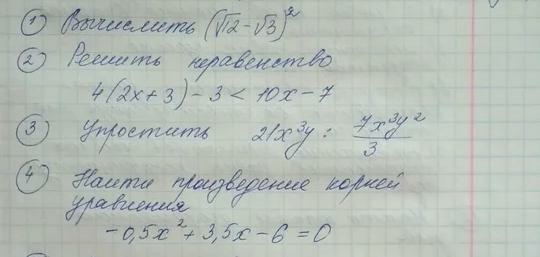 ① Вычислить (√12 - √3)²
② Решить неравенство
4(2x+3) - 3 < 10x - 7
③ Упростить 21x³y : 7x³y²/3
④ Найти произведение корней
уравнения
-0,5x² + 3,5x - 6 = 0